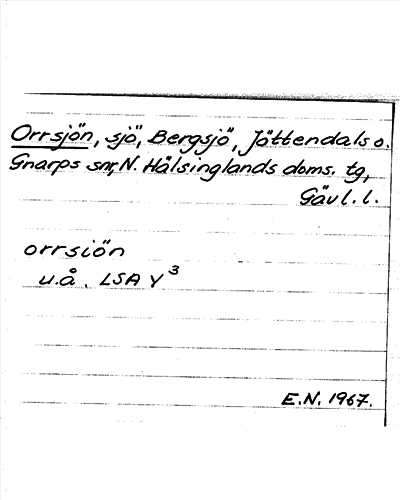 Orrsjön, sjö, Bergsjö, Jättendals o.
Gnarps snr, N. Hälsinglands doms. tg,
Gävl. l.
orrsiön
u.å. LSA Y³
E.N. 1967.